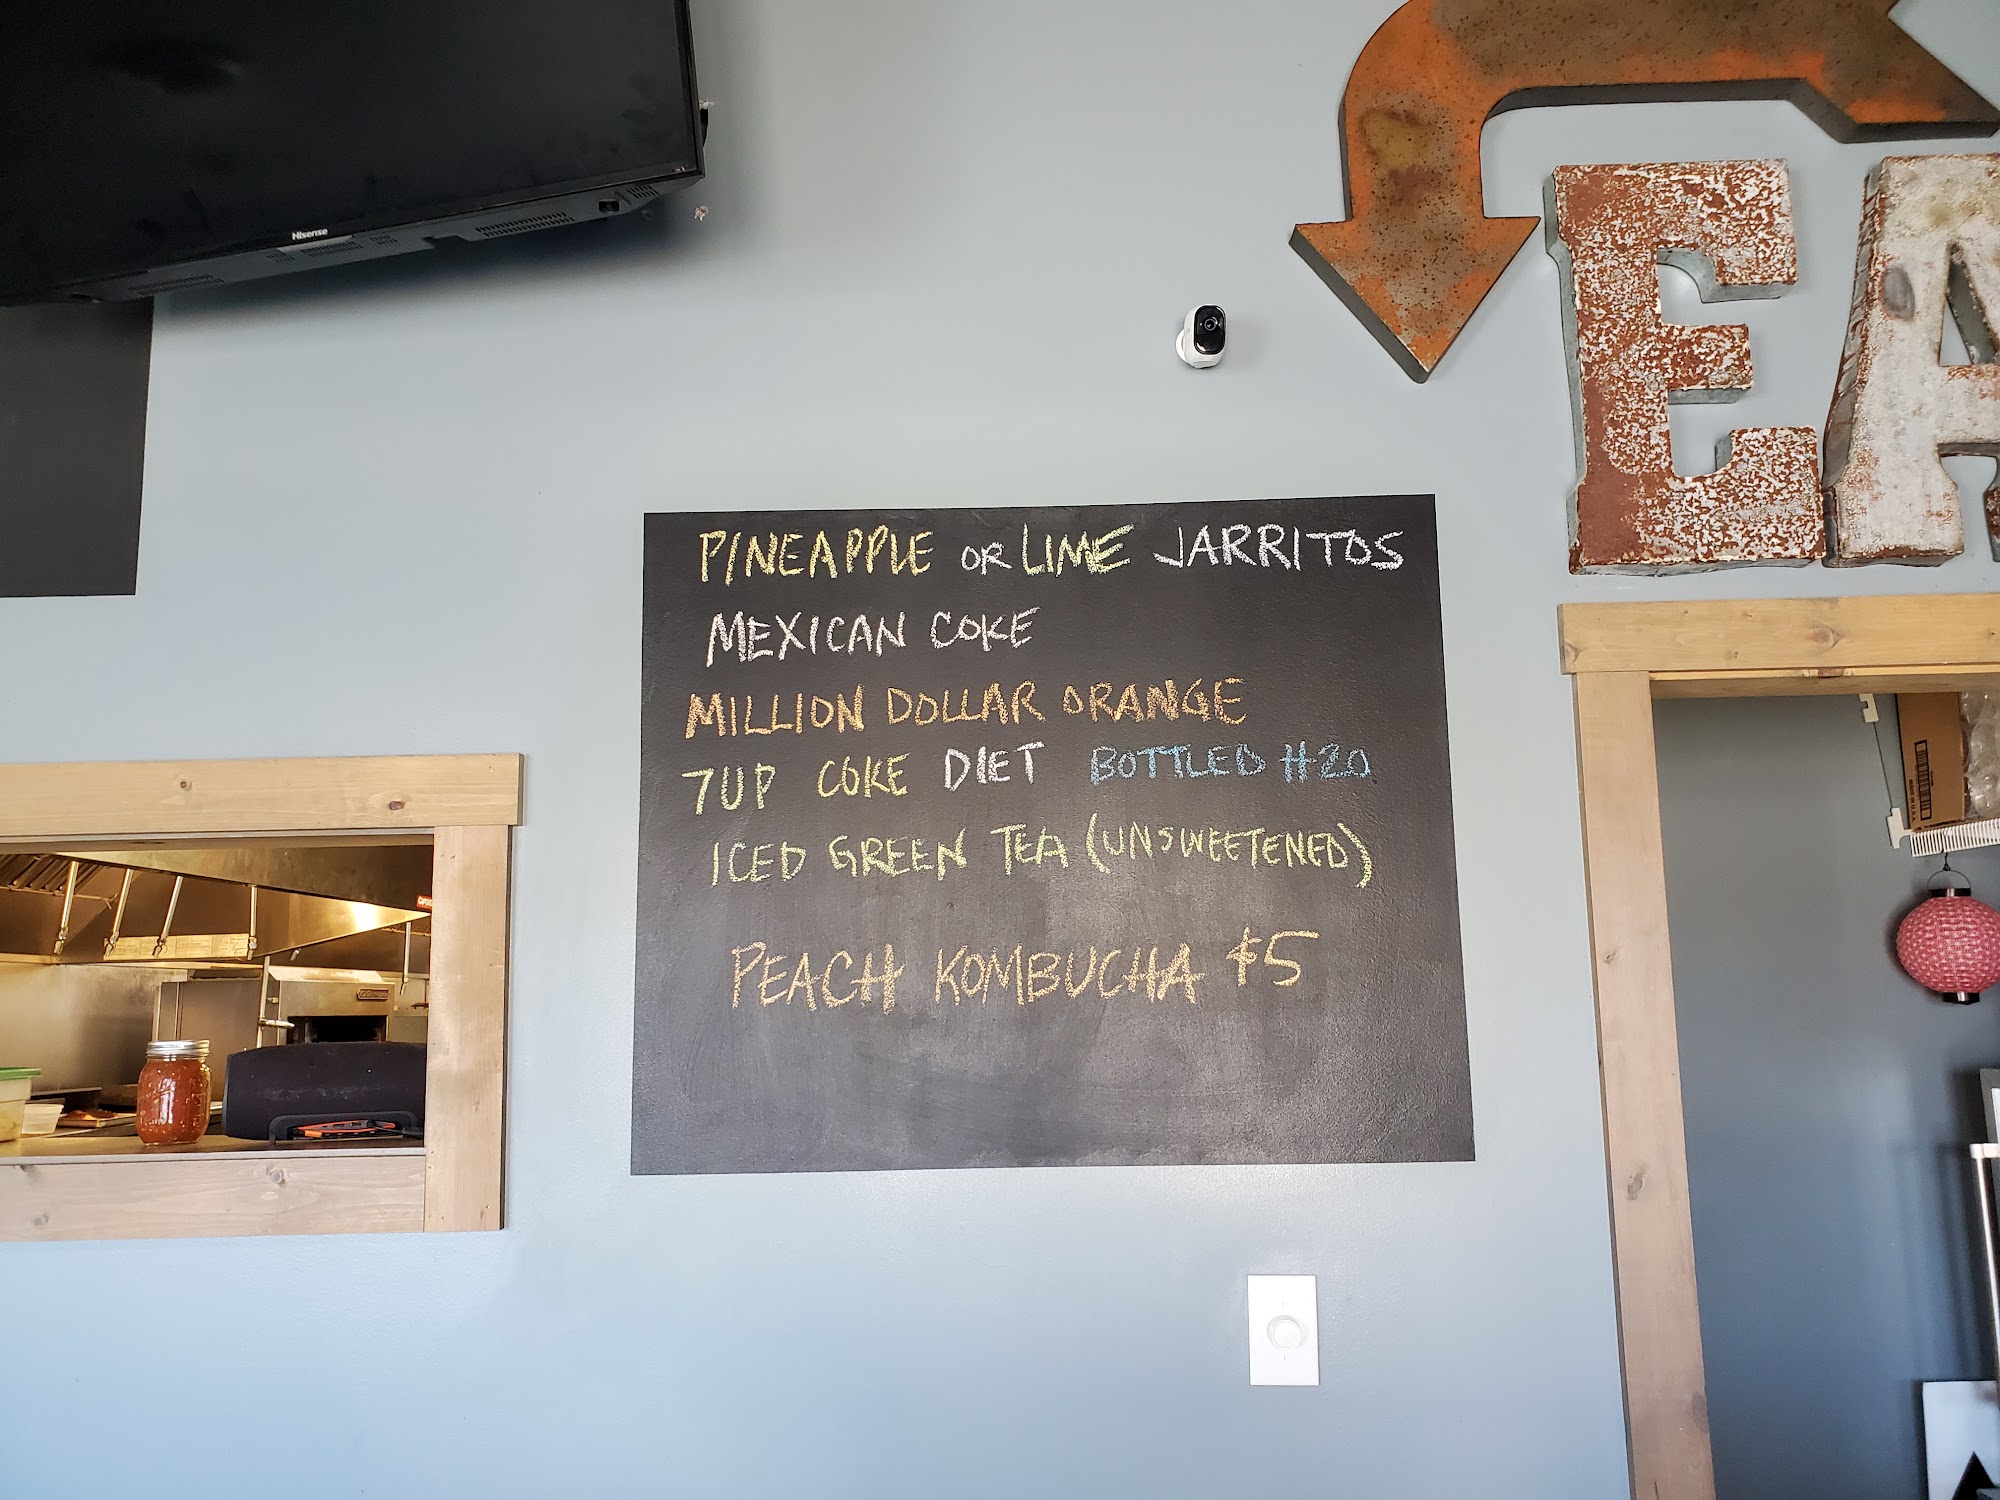 Hisense
EA
PINEAPPLE OR LIME JARRITOS
MEXICAN COKE
MILLION DOLLAR ORANGE
7UP COKE DIET BOTTLED H20
ICED GREEN TEA (UNSWEETENED)
PEACH KOMBUCHA $5